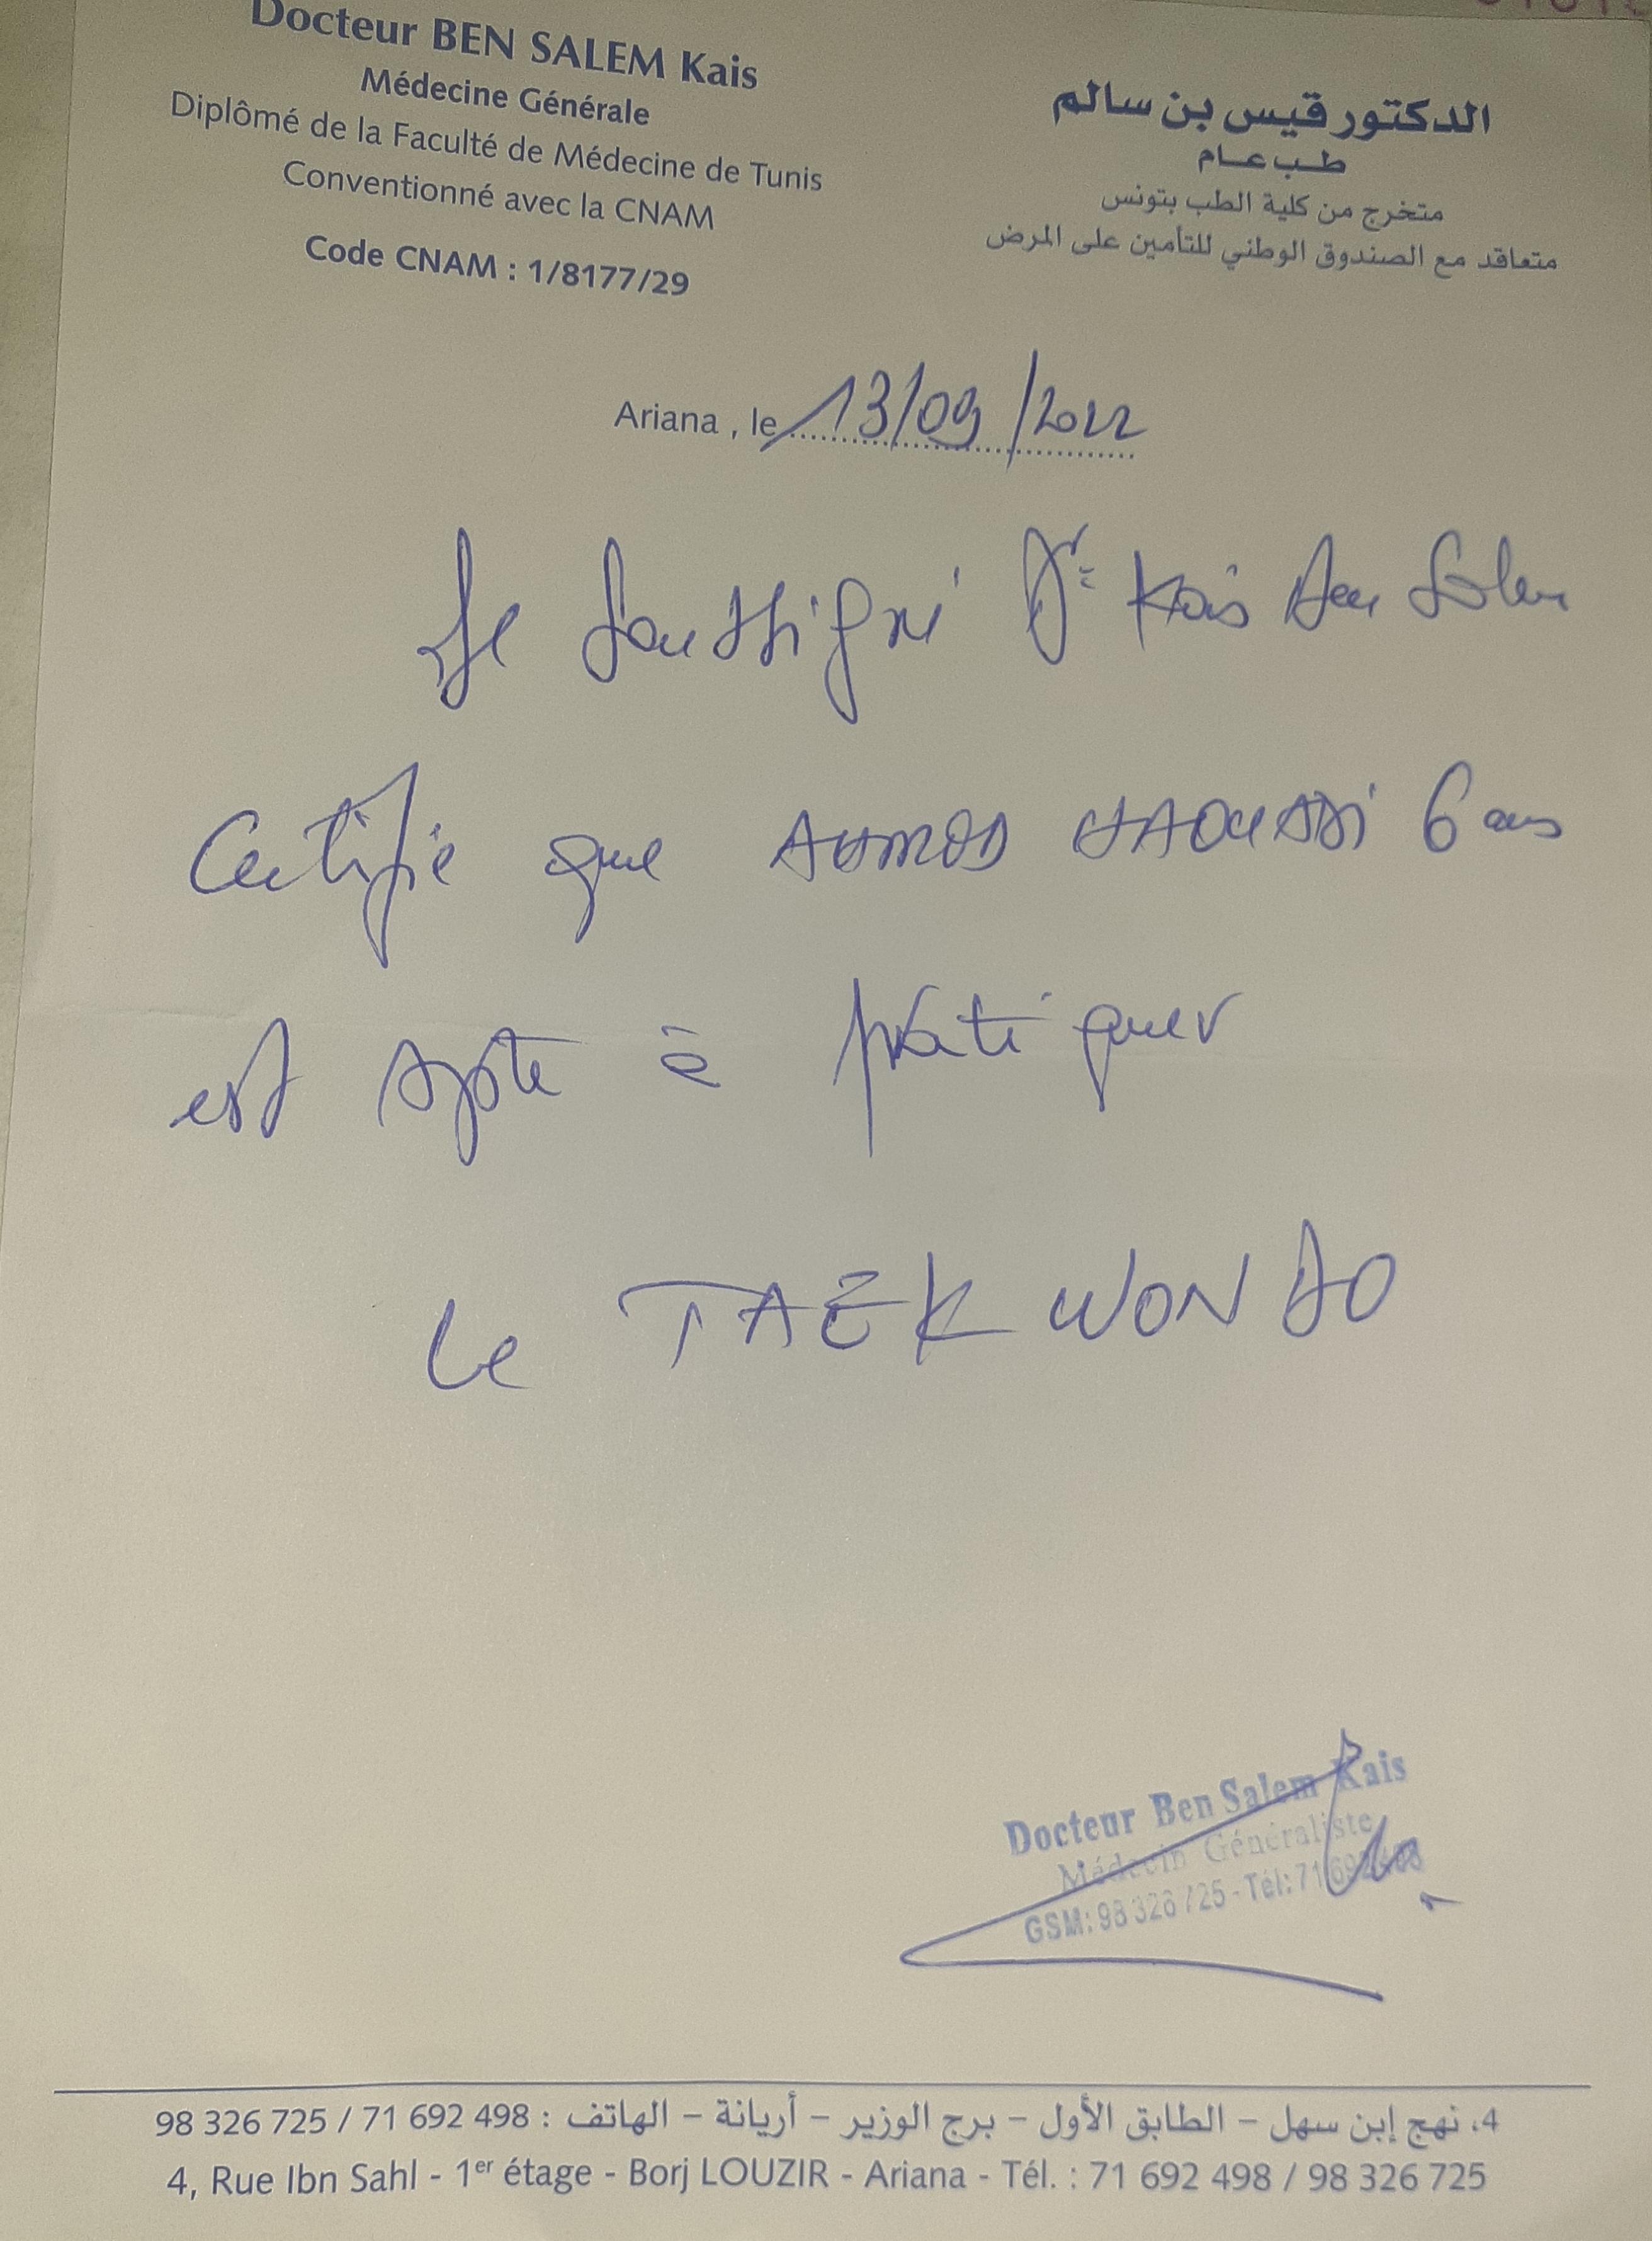 Docteur BEN SALEM Kais
Médecine Générale
Diplômé de la Faculté de Médecine de Tunis
Conventionné avec la CNAM
Code CNAM : 1/8177/29
الدكتور قيس بن سالم
طب عام
متخرج من كلية الطب بتونس
متعاقد مع الصندوق الوطني للتأمين على المرض
Ariana , le 13/09/2022
Je soussigné Dr Kais Ben Salem
Certifie que AHMED 6 ans
est apte à pratiquer
le TAEKWONDO
Docteur Ben Salem Kais
Médecin Généraliste
GSM: 98 326 725 - Tél: 71 692 498
4، نهج إبن سهل – الطابق الأول – برج الوزير – أريانة – الهاتف : 98 326 725 / 71 692 498
4, Rue Ibn Sahl - 1er étage - Borj LOUZIR - Ariana - Tél. : 71 692 498 / 98 326 725